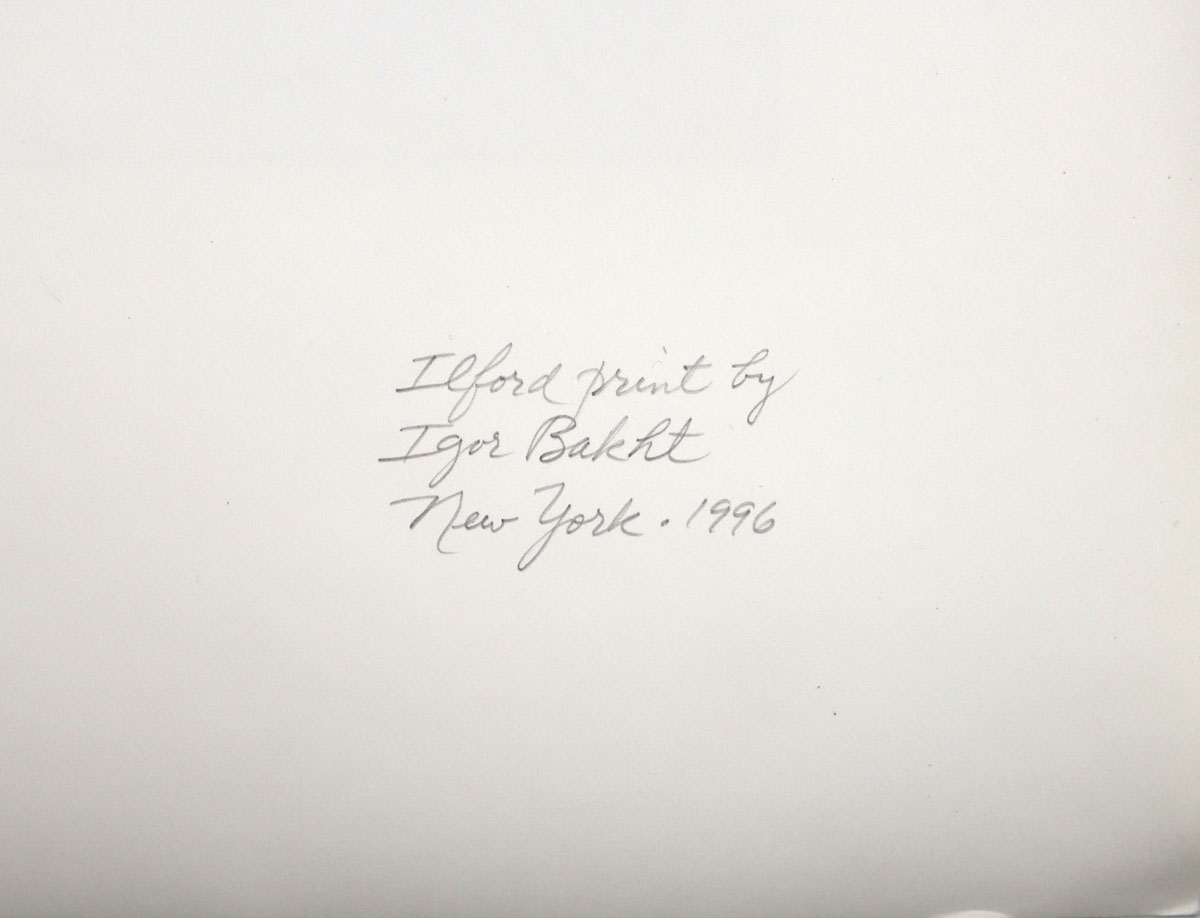 Ilford print by
Igor Bakht
New York . 1996